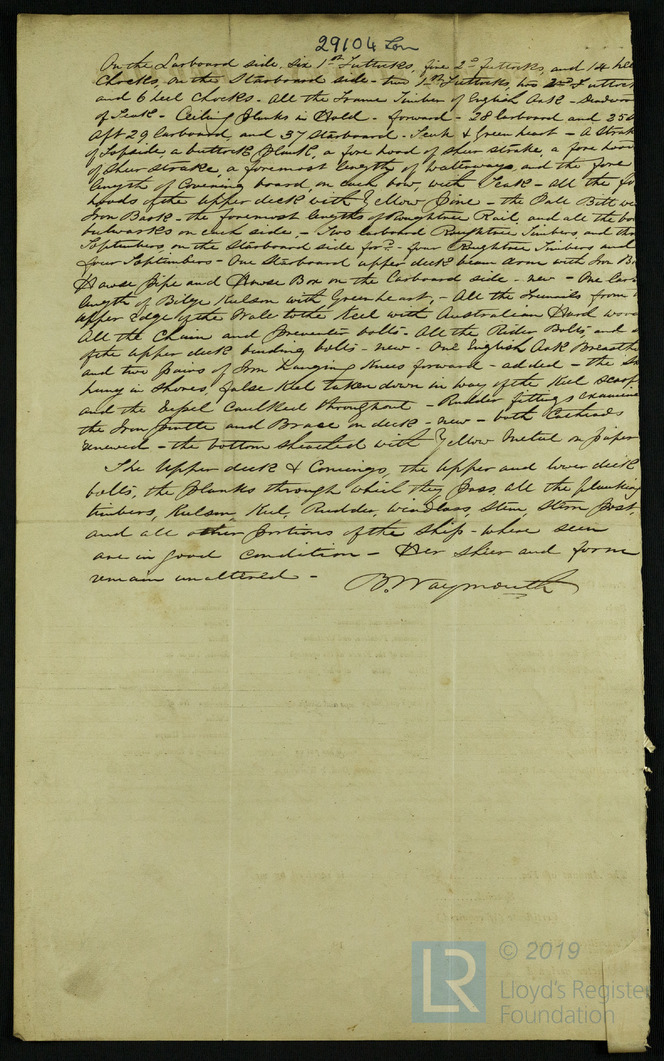 29104 Lon
On the Larboard side, six 1st Futtocks, five 2d futtocks, and 14 heel
Chocks, on the Starboard side - two 1st Futtocks, two 2nd Futtock
and 6 heel Chocks - All the Frame Timber of English Oak - Deadwood
of Teak - Ceiling Planks in Hold - forward - 28 larboard and 25
Aft 29 larboard, and 37 Starboard - Teak & Greenheart - A Strake
of Topside, a buttock Plank, a fore hood of sheer strake, a fore hood
of Sheer Strake, a foremost length of Waterways, and the fore
length of Covering board, on each bow, with Teak - All the fo
hoods of the Upper deck with Yellow Pine - the Pall Bitt wi
Iron Bark - the foremost lengths of Roughtree Rail, and all the bo
bulwarks on each side, - Two larboard Roughtree Timbers, and thr
Toptimbers, on the Starboard side for'd - four Roughtree Timbers and
four Toptimbers - One Starboard upper deck beam arm with Iron B
Hawse Pipe and Hawse Box on the Larboard side - new - One larb
length of Bilge Kelson with Greenheart, - All the Trenails from
upper edge of the Wale to the Keel with Australian Hard wood
All the Chain and Preventer bolts - All the Rider Bolts, and
of the upper deck binding bolts - new - One English Oak Breasth
and two pairs of Iron Hanging Knees forward - added - the S
hung in Shores, false Keel taken down in way of the Keel Scarf
and the Vessel Caulked throughout - Rudder fittings examine
the Iron Pintle and Brace on deck - new - both Catheads
renewed - the bottom sheathed with Yellow Metal on paper
The Upper deck & Comings, the Upper and lower deck
bolts, the planks through which they pass, all the planking
timbers, Kelson, Keel, Rudder, Windlass, Stem, Stern post,
and all other portions of the Ship - where seen
are in good condition - Her Sheer and form
remain unaltered -
B. Waymouth
LR
© 2019
Lloyd's Register
Foundation